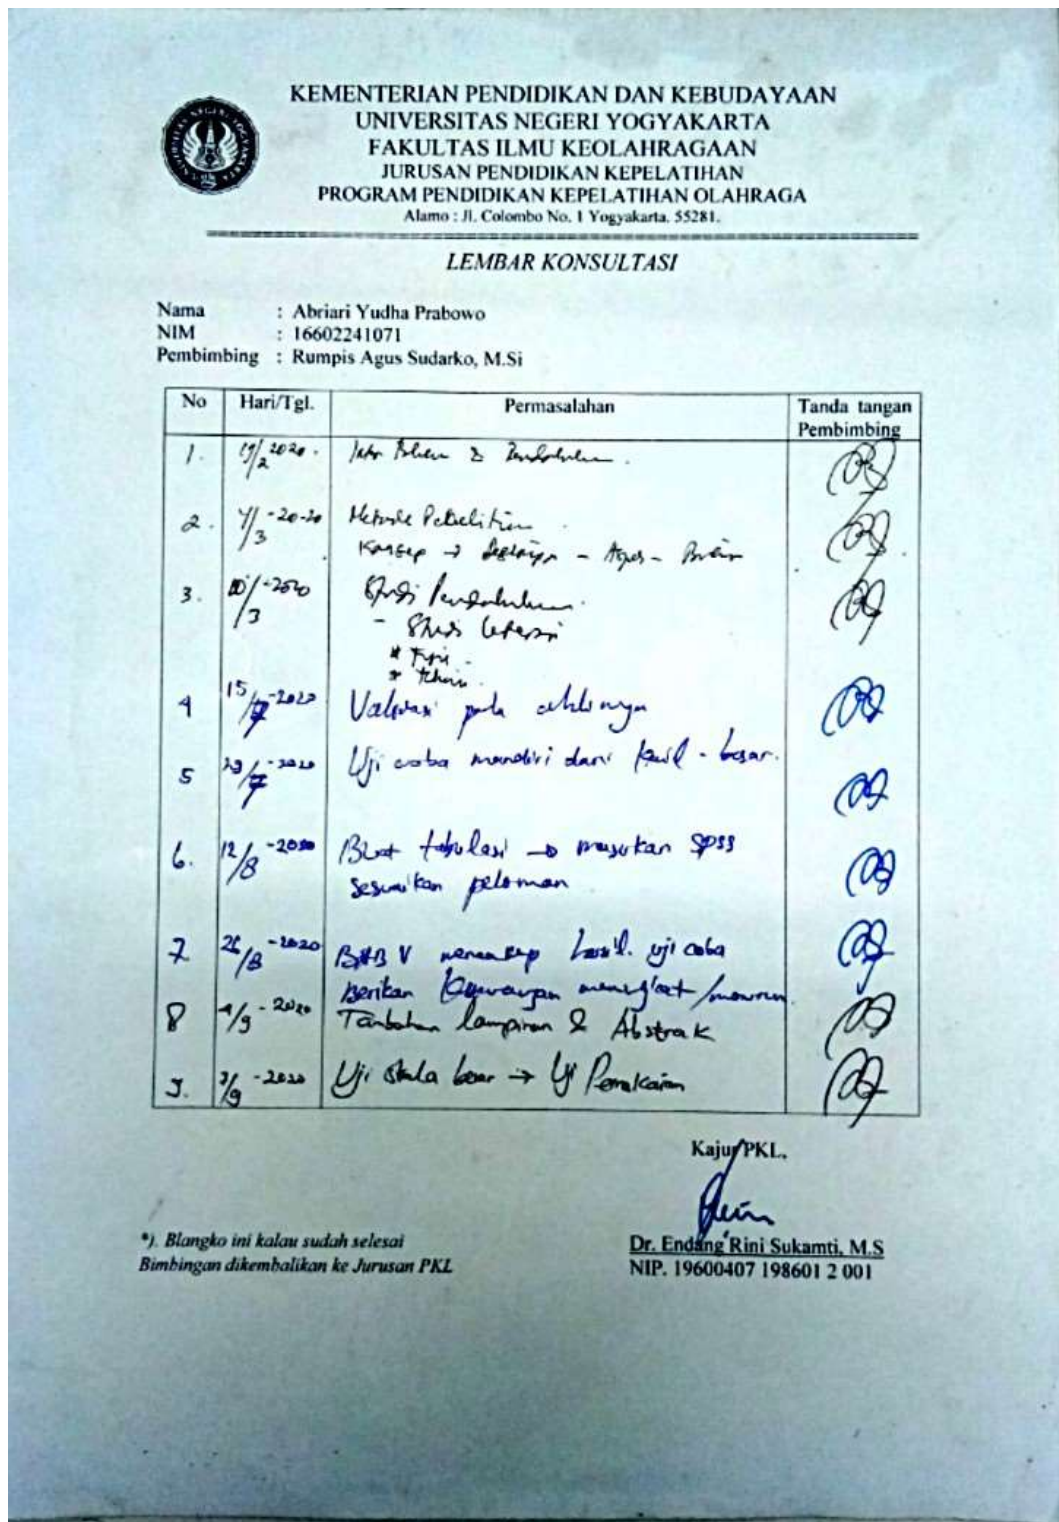 KEMENTERIAN PENDIDIKAN DAN KEBUDAYAAN
UNIVERSITAS NEGERI YOGYAKARTA
FAKULTAS ILMU KEOLAHRAGAAN
JURUSAN PENDIDIKAN KEPELATIHAN
PROGRAM PENDIDIKAN KEPELATIHAN OLAHRAGA
Alamo : Jl. Colombo No. 1 Yogyakarta. 55281.
LEMBAR KONSULTASI
Nama : Abriari Yudha Prabowo
NIM : 16602241071
Pembimbing : Rumpis Agus Sudarko, M.Si
No Hari/Tgl. Permasalahan Tanda tangan
Pembimbing
1. 19/2 2020.
2. /3 -20-20 Metode Penelitian
Konsep →
3. /3 -2020 Studi Pendahuluan
- Studi
4 15/7 -2020 Validasi pada ahlinya
5 /7 -2020 Uji coba mandiri dari kecil - besar.
6. 12/8 -2020 Buat tabulasi → masukan SPSS
sesuaikan pedoman
7 26/8 -2020 BAB V hasil. uji coba
Berikan /menurun
8 /9 -2020 Tambahan lampiran & Abstrak
9. /9 -2020 Uji skala besar → Uji Pemakaian
Kajur PKL,
*). Blangko ini kalau sudah selesai
Bimbingan dikembalikan ke Jurusan PKL
Dr. Endang Rini Sukamti, M.S
NIP. 19600407 198601 2 001